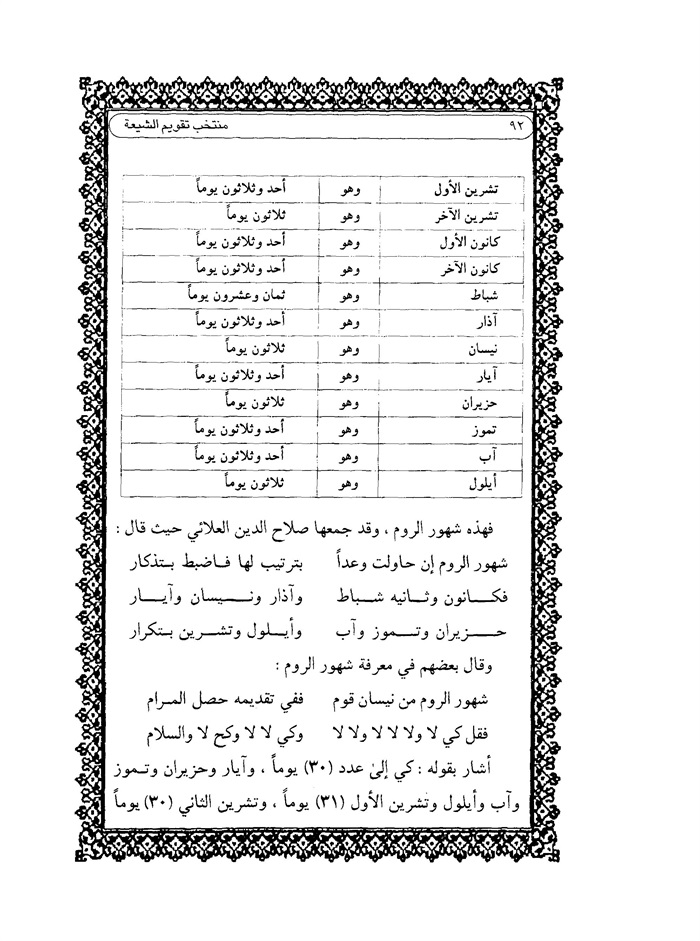 ٩٢ منتخب تقويم الشيعة
تشرين الأول وهو أحد وثلاثون يوماً
تشرين الآخر وهو ثلاثون يوماً
كانون الأول وهو أحد وثلاثون يوماً
كانون الآخر وهو أحد وثلاثون يوماً
شباط وهو ثمان وعشرون يوماً
آذار وهو أحد وثلاثون يوماً
نيسان وهو ثلاثون يوماً
آيار وهو أحد وثلاثون يوماً
حزيران وهو ثلاثون يوماً
تموز وهو أحد وثلاثون يوماً
آب وهو أحد وثلاثون يوماً
أيلول وهو ثلاثون يوماً
فهذه شهور الروم ، وقد جمعها صلاح الدين العلائي حيث قال :
شهور الروم إن حاولت وعداً بترتيب لها فاضبط بتذكار
فكانون وثانيه شباط وآذار ونيسان وآيار
حزيران وتموز وآب وأيلول وتشرين بتكرار
وقال بعضهم في معرفة شهور الروم :
شهور الروم من نيسان قوم ففي تقديمه حصل المرام
فقل كي لا ولا لا لا ولا لا وكي لا لا وكح لا والسلام
أشار بقوله : كي إلىٰ عدد (٣٠) يوماً ، وآيار وحزيران وتموز
وآب وأيلول وتشرين الأول (٣١) يوماً ، وتشرين الثاني (٣٠) يوماً